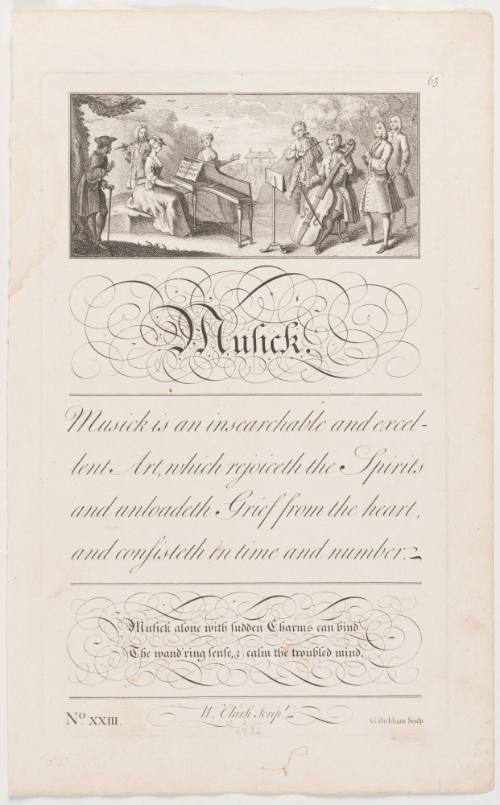 65
Musick.
Musick is an insearchable and excel-
lent Art, which rejoiceth the Spirits
and unloadeth Grief from the heart,
and consisteth in time and number.
Musick alone with sudden Charms can bind
The wand'ring sense, & calm the troubled mind.
No. XXIII.
W. Clark Scrip.t
G. Bickham Sculp.
1736